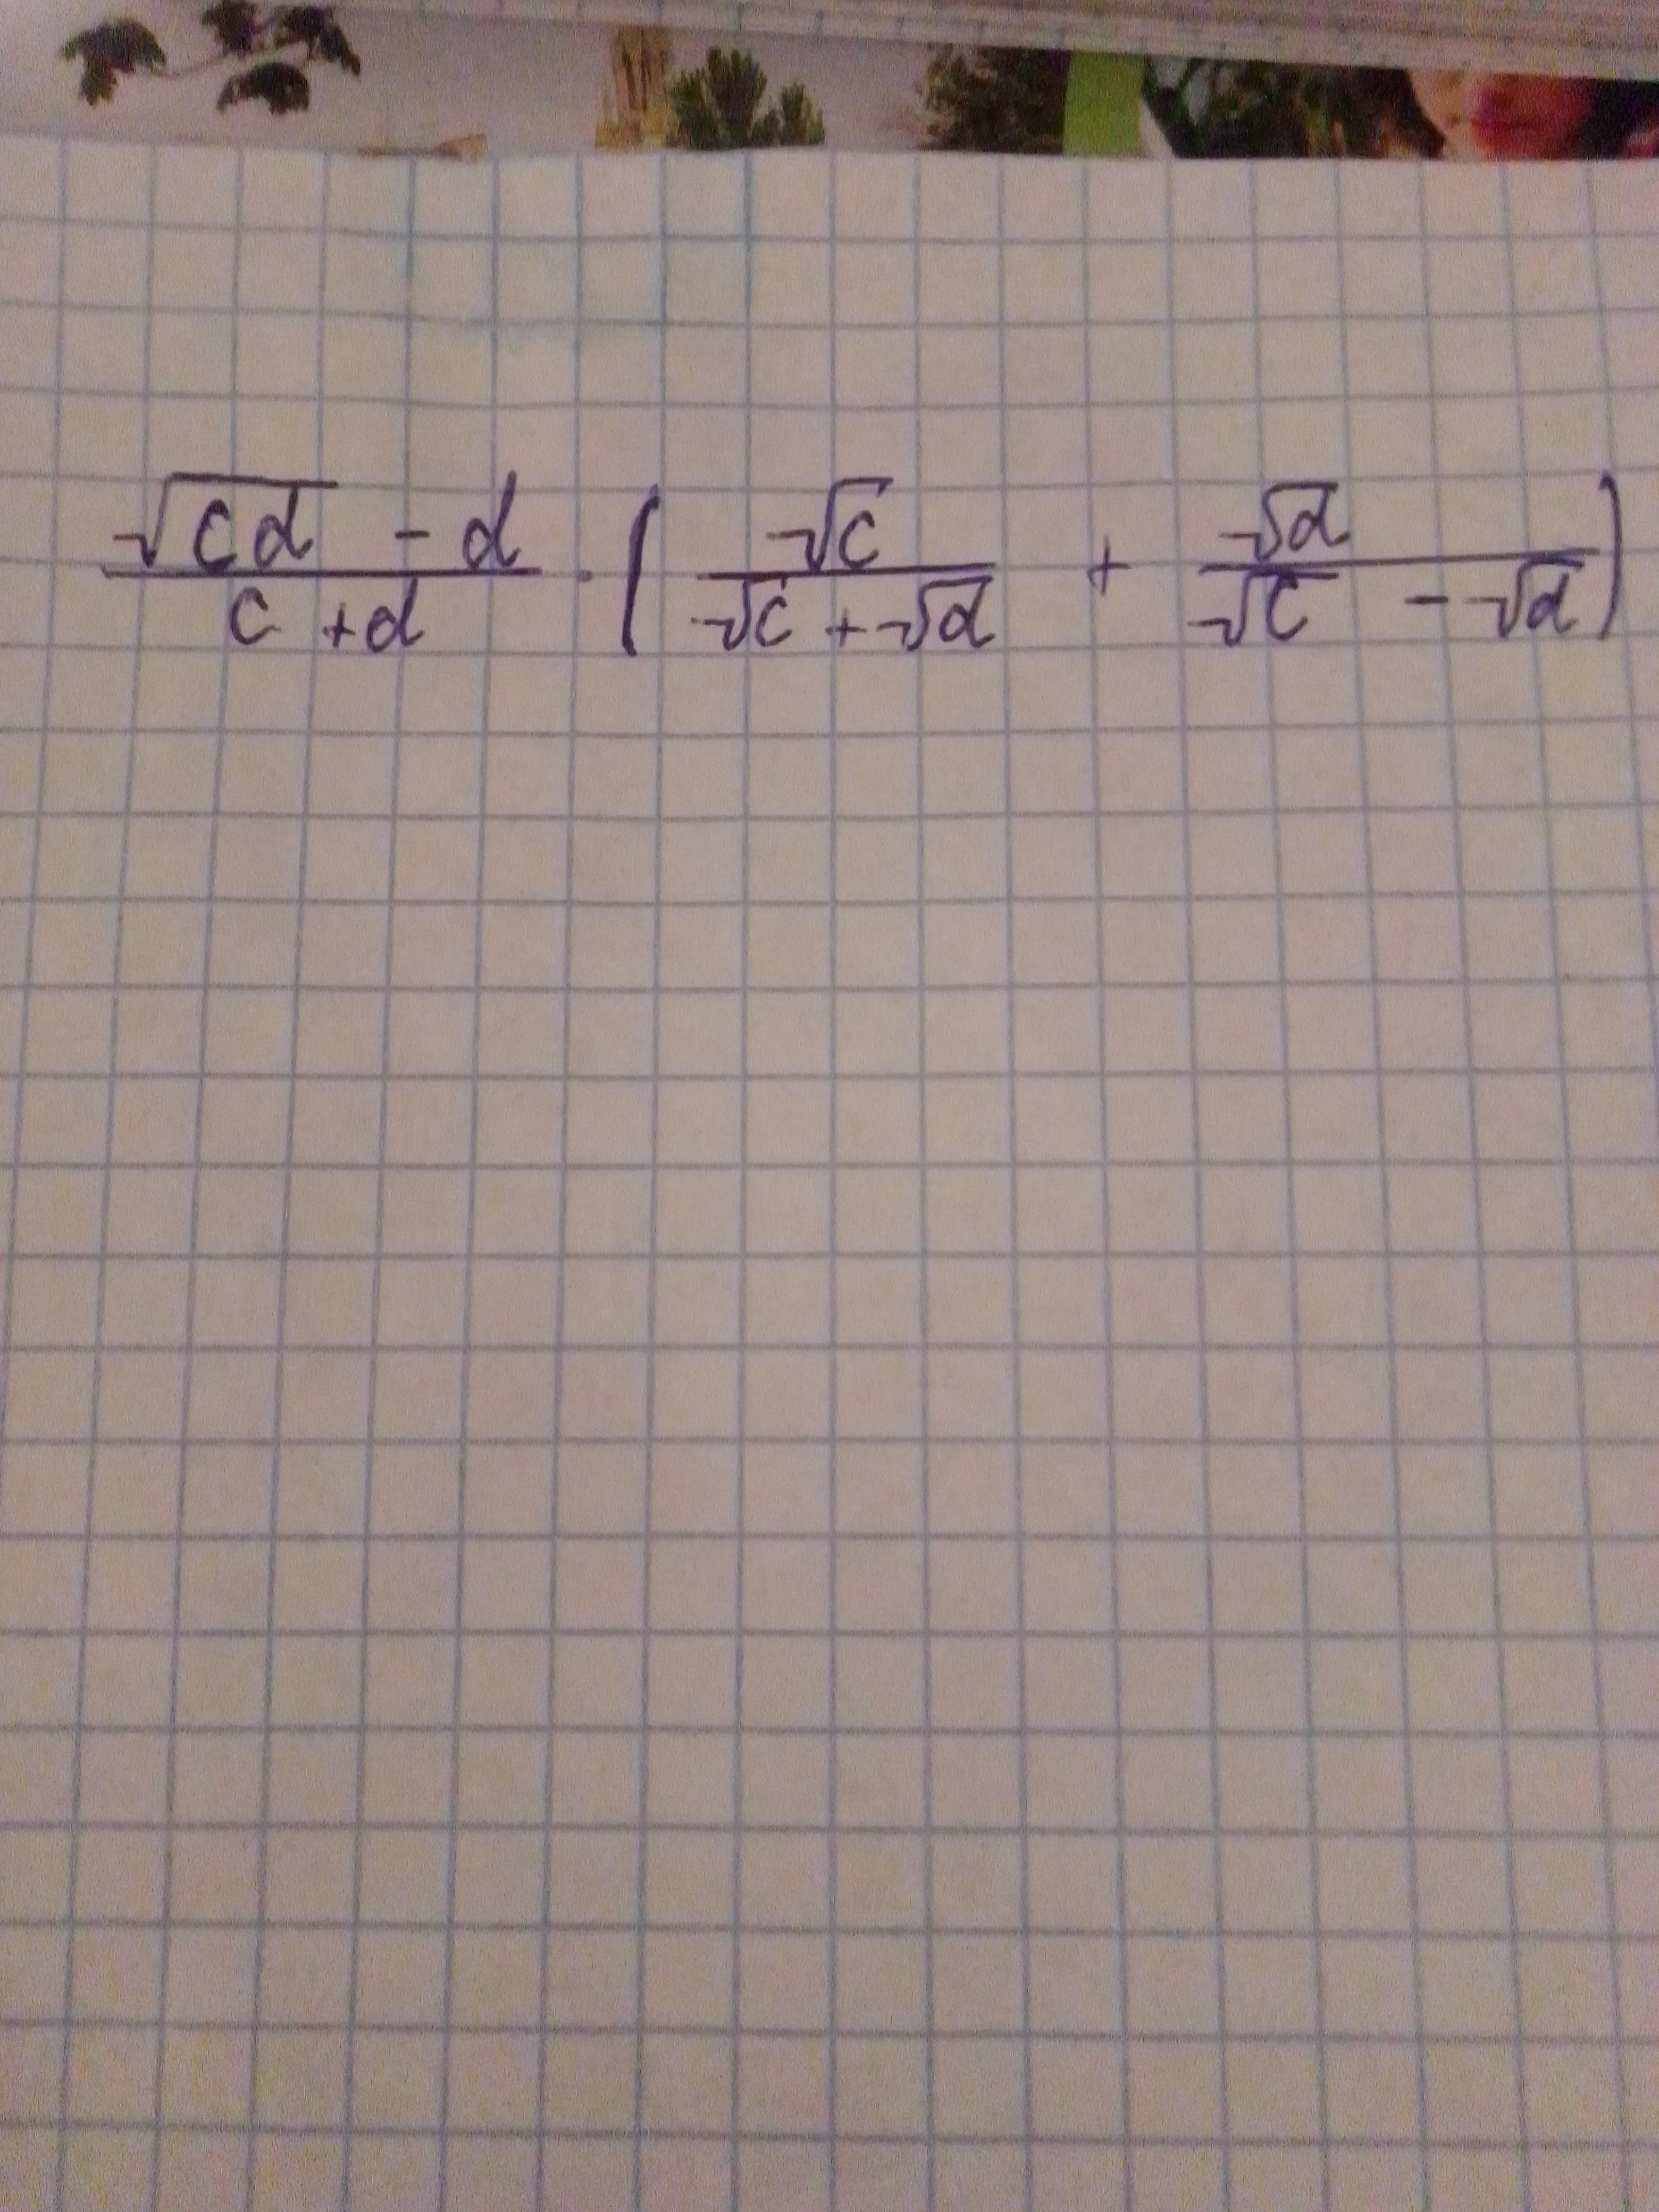 \frac{\sqrt{cd} - d}{c + d} \cdot \left( \frac{\sqrt{c}}{\sqrt{c} + \sqrt{d}} + \frac{\sqrt{d}}{\sqrt{c} - \sqrt{d}} \right)